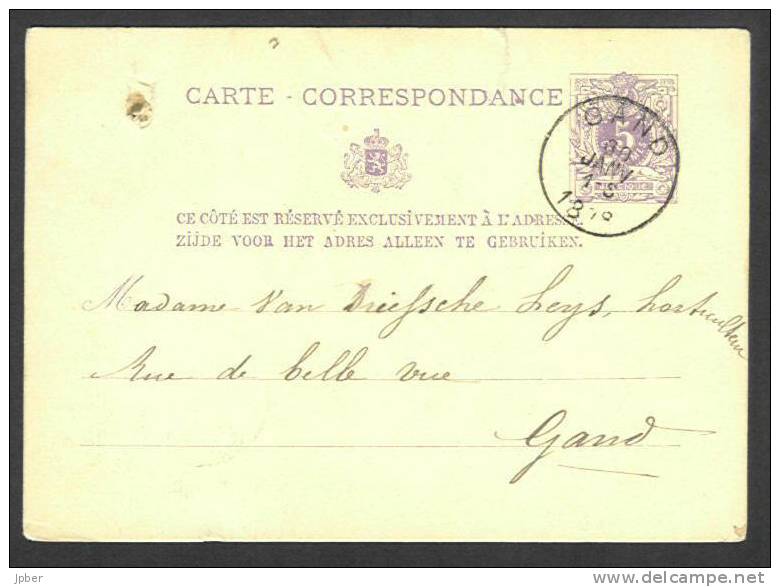 CARTE - CORRESPONDANCE
GAND
JANV
5
CE CÔTÉ EST RÉSERVÉ EXCLUSIVEMENT À L'ADRESSE.
ZIJDE VOOR HET ADRES ALLEEN TE GEBRUIKEN.
Madame Van Driessche Leys, horticulteur
Rue de belle vue
Gand
jpber
www.delcampe.net